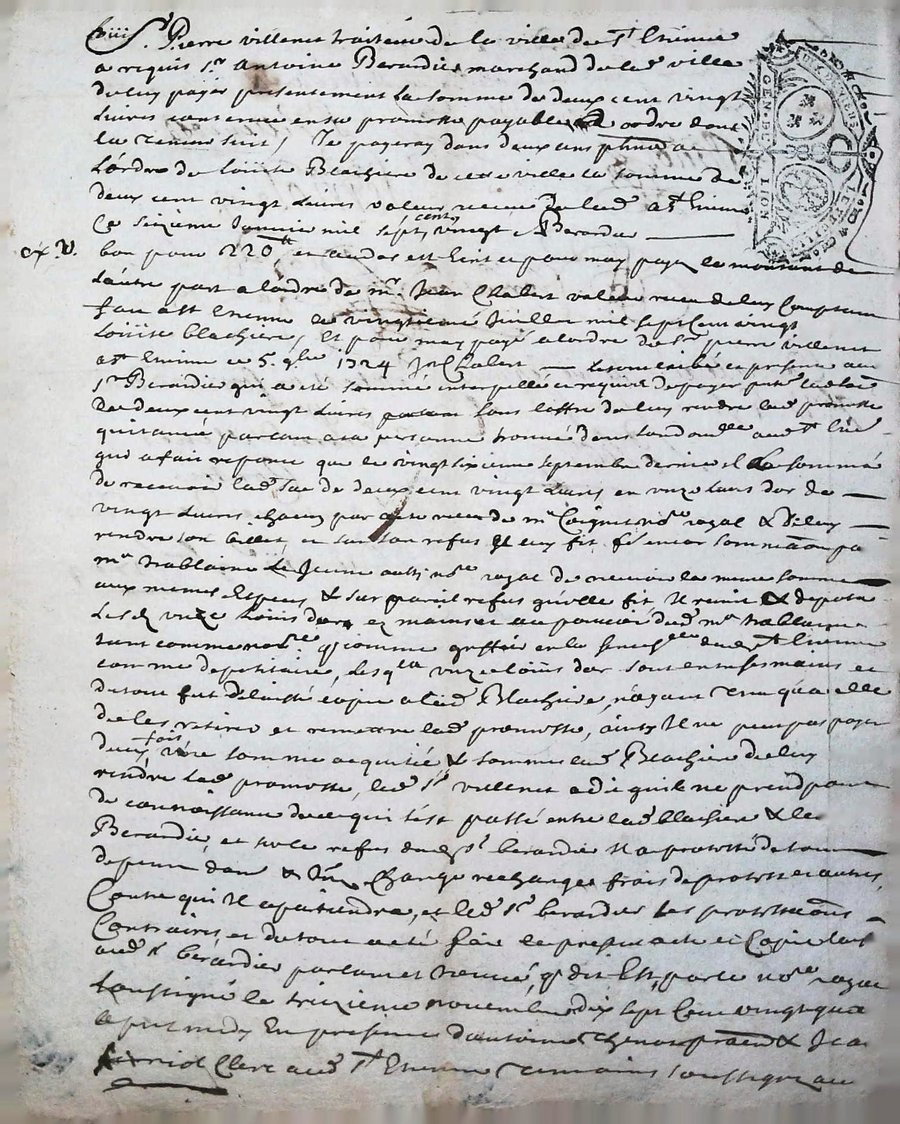 Sr. Pierre villenet traiteur de la ville de St. Etienne
a requis Sr. Antoine Berardier marchand de lad. ville
de luy payer presentement la somme de deux cent vingt
livres contenue en sa promesse payable a ordre dont
la teneur suit, Je payeray dans deux ans
L'ordre de Louise Blachiere de cette ville la somme de
deux cent vingt livres valeur receue de lad. a St. Etienne
Ce seizieme Janvier mil sept cents vingt Berardier
bon pour 220 tt, et au dos est Ecrit et pour moy payez le montant de
L'autre part a l'ordre de Mr. Jean Chabert valeur receue de luy Comptant
fait a St. Etienne le vingtieme Juillet mil sept Cent vingt
Louise blachiere, Et pour moy payé a lordre de Sr. pierre villenet
a St. Etienne ce 5. 9bre 1724 Jn. Chabert
Sr. Berardier qui a été sommé interpellé et requis de payer lad.
de deux cent vingt livres sous loffre de luy rendre lad. promesse
quitancée parlant a sa personne trouvée dans son domlle aud. St.
qui a fait reponce que le vingt sixieme septembre dernier il La sommé
de recevoir lad. de deux cent vingt livres en onze louis dor de
vingt livres chacun par acte receu de Me. no.re royal & de luy
rendre son billet, et sur son refus Il luy fit encor sommation par
Me. le Jeune aussy no.re royal de recevoir la meme somme
aux memes Especes & sur pareil refus qu'elle fit Il remit & deposa
Lesd. onze Louis dor ez mains et au pouvoir dud. Me.
tant comme no.re que comme greffier en la dud. St. Etienne
comme depositaire, lesq. onze louis dor sont entre ses mains et
du tout fut delaissé copie a lad. Blachiere, n'ayant tenu qu'a elle
de les retirer et remettre lad. promesse, ainsy Il ne peut pas payer
deux fois une somme acquitée & somme lad. Blachiere de luy
rendre lad. promesse, led. Sr. villenet a dit quil ne prend point
de connoissance de ce qui s'est passé entre lad. blachiere & led.
Berardier, et sur le refus dud. Sr. berardier Il a protesté de tous
depens dom. & Int. Change rechange frais de protest et autres,
Contre qui Il apartiendra, et led. Sr. berardier Les protestations
Contraires, et du tout a été fait le present acte et Copie
aud. Sr. berardier parlant et trouvé, q. dit Est, par le no.re royal
soussigné le treizieme novembre dix sept Cent vingt quatre
apres midy En presence d'antoine & Jean
Clerc aud. St. Etienne temoins soussignez au
GEN. DU LION